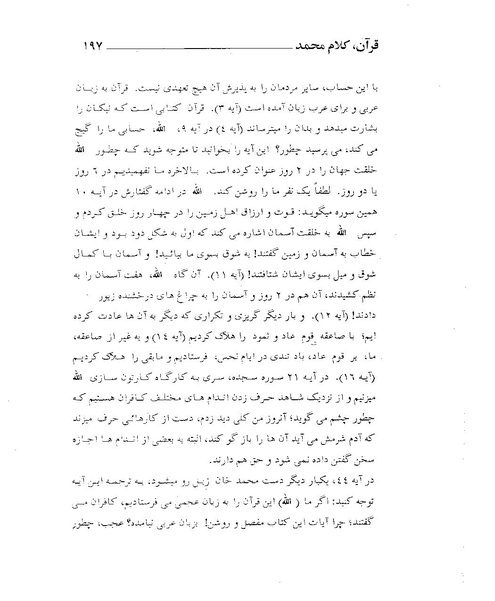 قرآن، کلام محمد ۱۹۷
با این حساب، سایر مردمان را به پذیرش آن هیچ تعهدی نیست. قرآن به زبان
عربی و برای عرب زبان آمده است (آیه ۳). قرآن کتابی است که نیکان را
بشارت میدهد و بدان را میترساند (آیه ٤) در آیه ۹، الله، حسابی ما را گیج
می کند، می پرسید چطور؟ این آیه را بخوانید تا متوجه شوید که چطور الله
خلقت جهان را در ۲ روز عنوان کرده است. بالاخره ما نفهمیدیم در ٦ روز
یا دو روز. لطفاً یک نفر ما را روشن کند. الله در ادامه گفتارش در آیه ۱۰
همین سوره میگوید: قوت و ارزاق اهل زمین را در چهار روز خلق کردم و
سپس الله به خلقت آسمان اشاره می کند که اول به شکل دود بود و ایشان
خطاب به آسمان و زمین گفتند! به شوق بسوی ما بیائید! و آسمان با کمال
شوق و میل بسوی ایشان شتافتند! (آیه ۱۱). آن گاه الله، هفت آسمان را به
نظم کشیدند، آن هم در ۲ روز و آسمان را به چراغ های درخشنده زیور
دادند! (آیه ۱۲). و بار دیگر گریزی و تکراری که دیگر به آن ها عادت کرده
ایم؛ با صاعقه قوم عاد و ثمود را هلاک کردیم (آیه ۱٤) و به غیر از صاعقه،
ما، بر قوم عاد، باد تندی در ایام نحس، فرستادیم و مابقی را هلاک کردیم
(آیه ۱٦). در آیه ۲۱ سوره سجده، سری به کارگاه کارتون سازی الله
میزنیم و از نزدیک شاهد حرف زدن اندام های مختلف کافران هستیم که
چطور چشم می گوید؛ آنروز من کلی دید زدم، دست از کارهائی حرف میزند
که آدم شرمش می آید آن ها را باز گو کند، البته به بعضی از اندام ها اجازه
سخن گفتن داده نمی شود و حق هم دارند.
در آیه ٤٤، یکبار دیگر دست محمد خان زیل رو میشود، به ترجمه این آیه
توجه کنید: اگر ما (الله) این قرآن را به زبان عجمی می فرستادیم، کافران می
گفتند؛ چرا آیات این کتاب مفصل و روشن! بزبان عربی نیامده؟ عجب، چطور